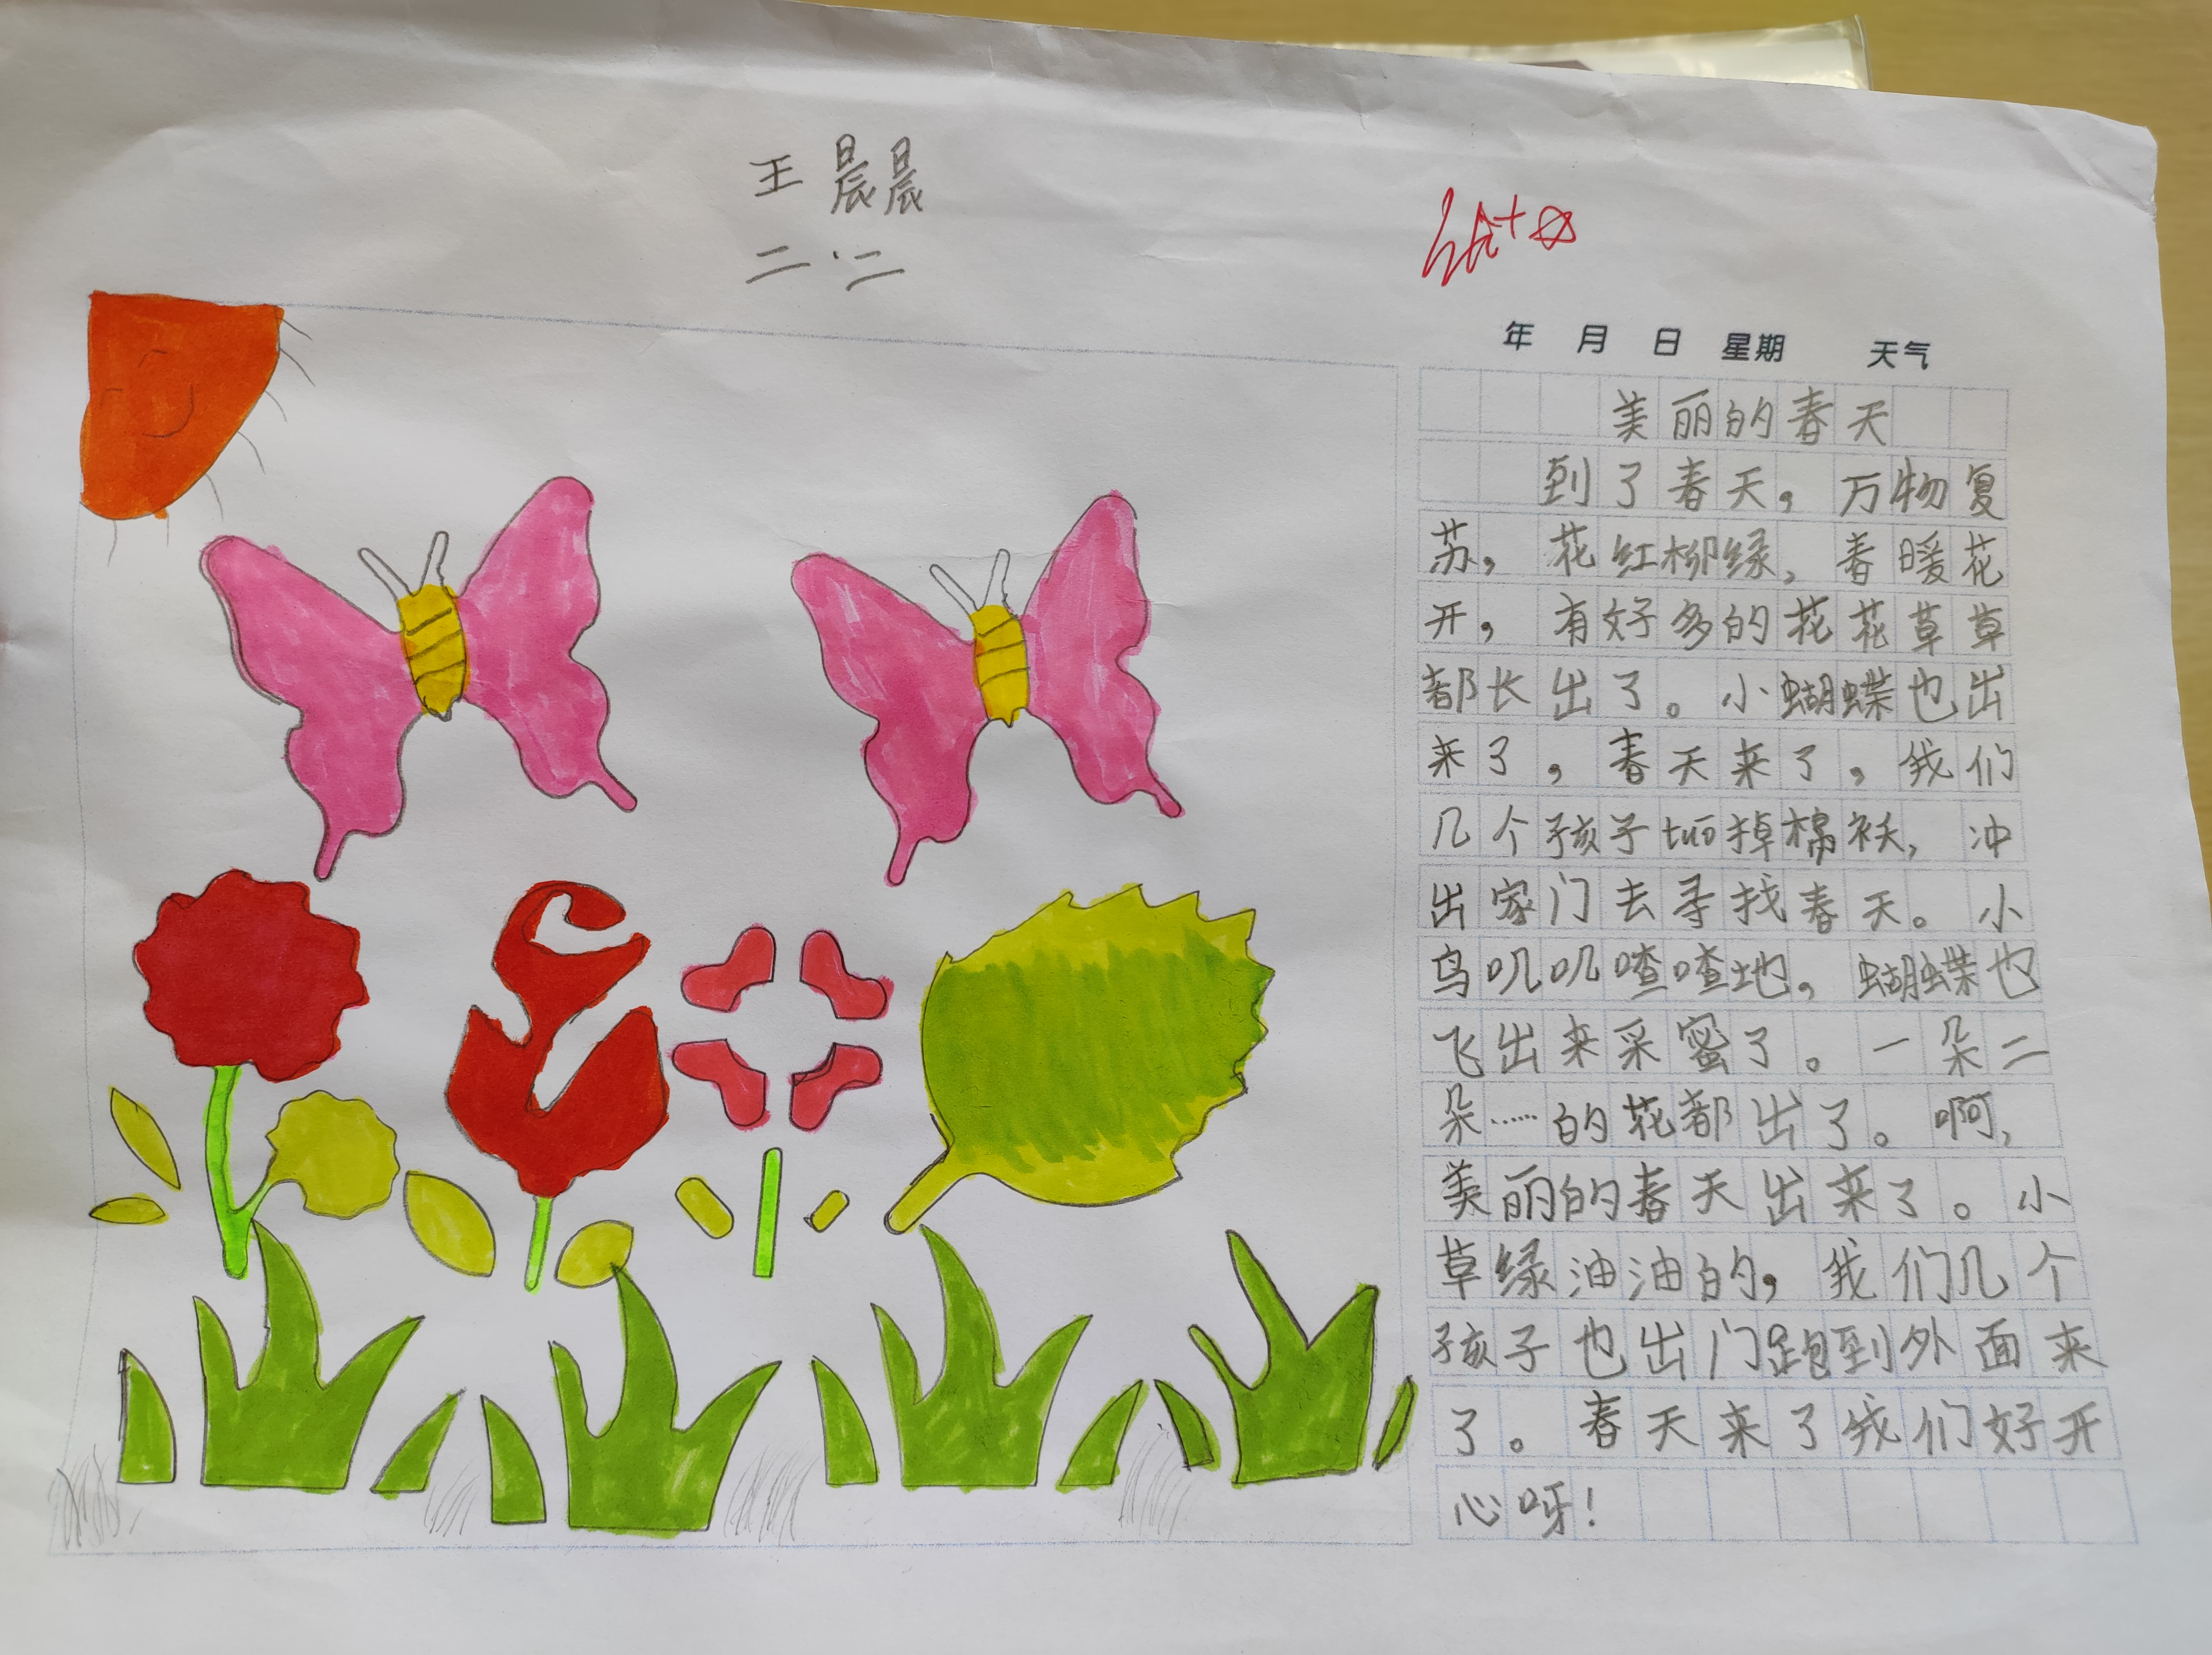 王晨晨
二·二
年 月 日 星期 天气
美丽的春天
到了春天，万物复
苏，花红柳绿，春暖花
开，有好多的花花草草
都长出了。小蝴蝶也出
来了，春天来了，我们
几个孩子 掉棉袄，冲
出家门去寻找春天。小
鸟叽叽喳喳地，蝴蝶也
飞出来采蜜了。一朵二
朵……的花都出了。啊，
美丽的春天出来了。小
草绿油油的，我们几个
孩子也出门跑到外面来
了。春天来了我们好开
心呀！